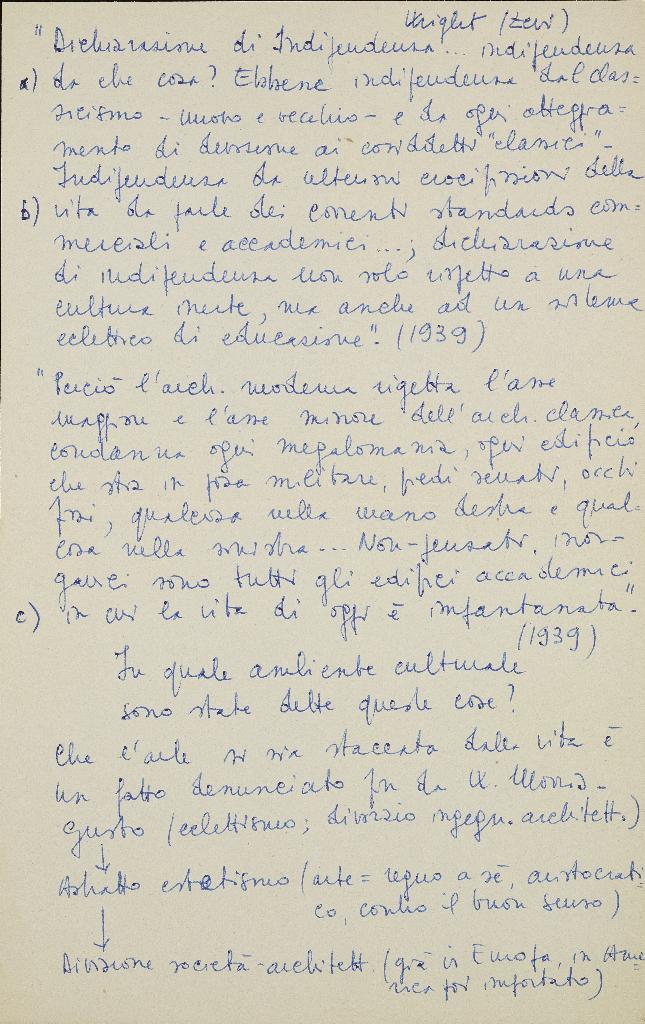 Wright (Zevi)
"Dichiarazione di Indipendenza... indipendenza
a) da che cosa? Ebbene indipendenza dal clas=
sicismo - nuovo e vecchio - e da ogni atteggia=
mento di devozione ai cosiddetti "classici" -
Indipendenza da ulteriori crocifissioni della
b) vita da parte dei correnti standards com=
merciali e accademici...; dichiarazione
di indipendenza non solo rispetto a una
cultura inerte, ma anche ad un sistema
eclettico di educazione". (1939)
"Perciò l'arch. moderna rigetta l'asse
maggiore e l'asse minore dell'arch. classica,
condanna ogni megalomania, ogni edificio
che stia in posa militare, piedi serrati, occhi
fissi, qualcosa nella mano destra e qual=
cosa nella sinistra... Non-pensati, inor=
ganici sono tutti gli edifici accademici
c) in cui la vita di oggi è impantanata".
(1939)
In quale ambiente culturale
sono state dette queste cose?
Che l'arte si sia staccata dalla vita è
un fatto denunciato fin da W. Morris -
Gusto (eclettismo; divorzio ingegn. architett.)
↓
Astratto estetismo (arte = regno a sé, aristocrati=
co, contro il buon senso)
↓
Divisione società-architett. (già in Europa, in Ame
rica poi importato)